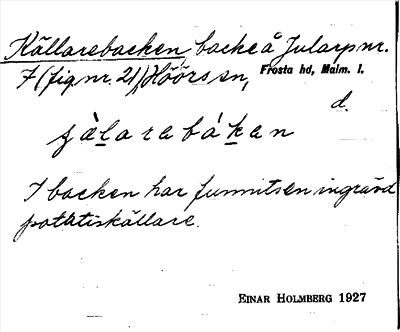 Källarebacken, backe å Jularp nr.
7 (fig nr. 21), Höörs sn, Frosta hd, Malm. l.
d.
säl̲arebák̲an
I backen har funnits en ingrävd
potatiskällare.
EINAR HOLMBERG 1927